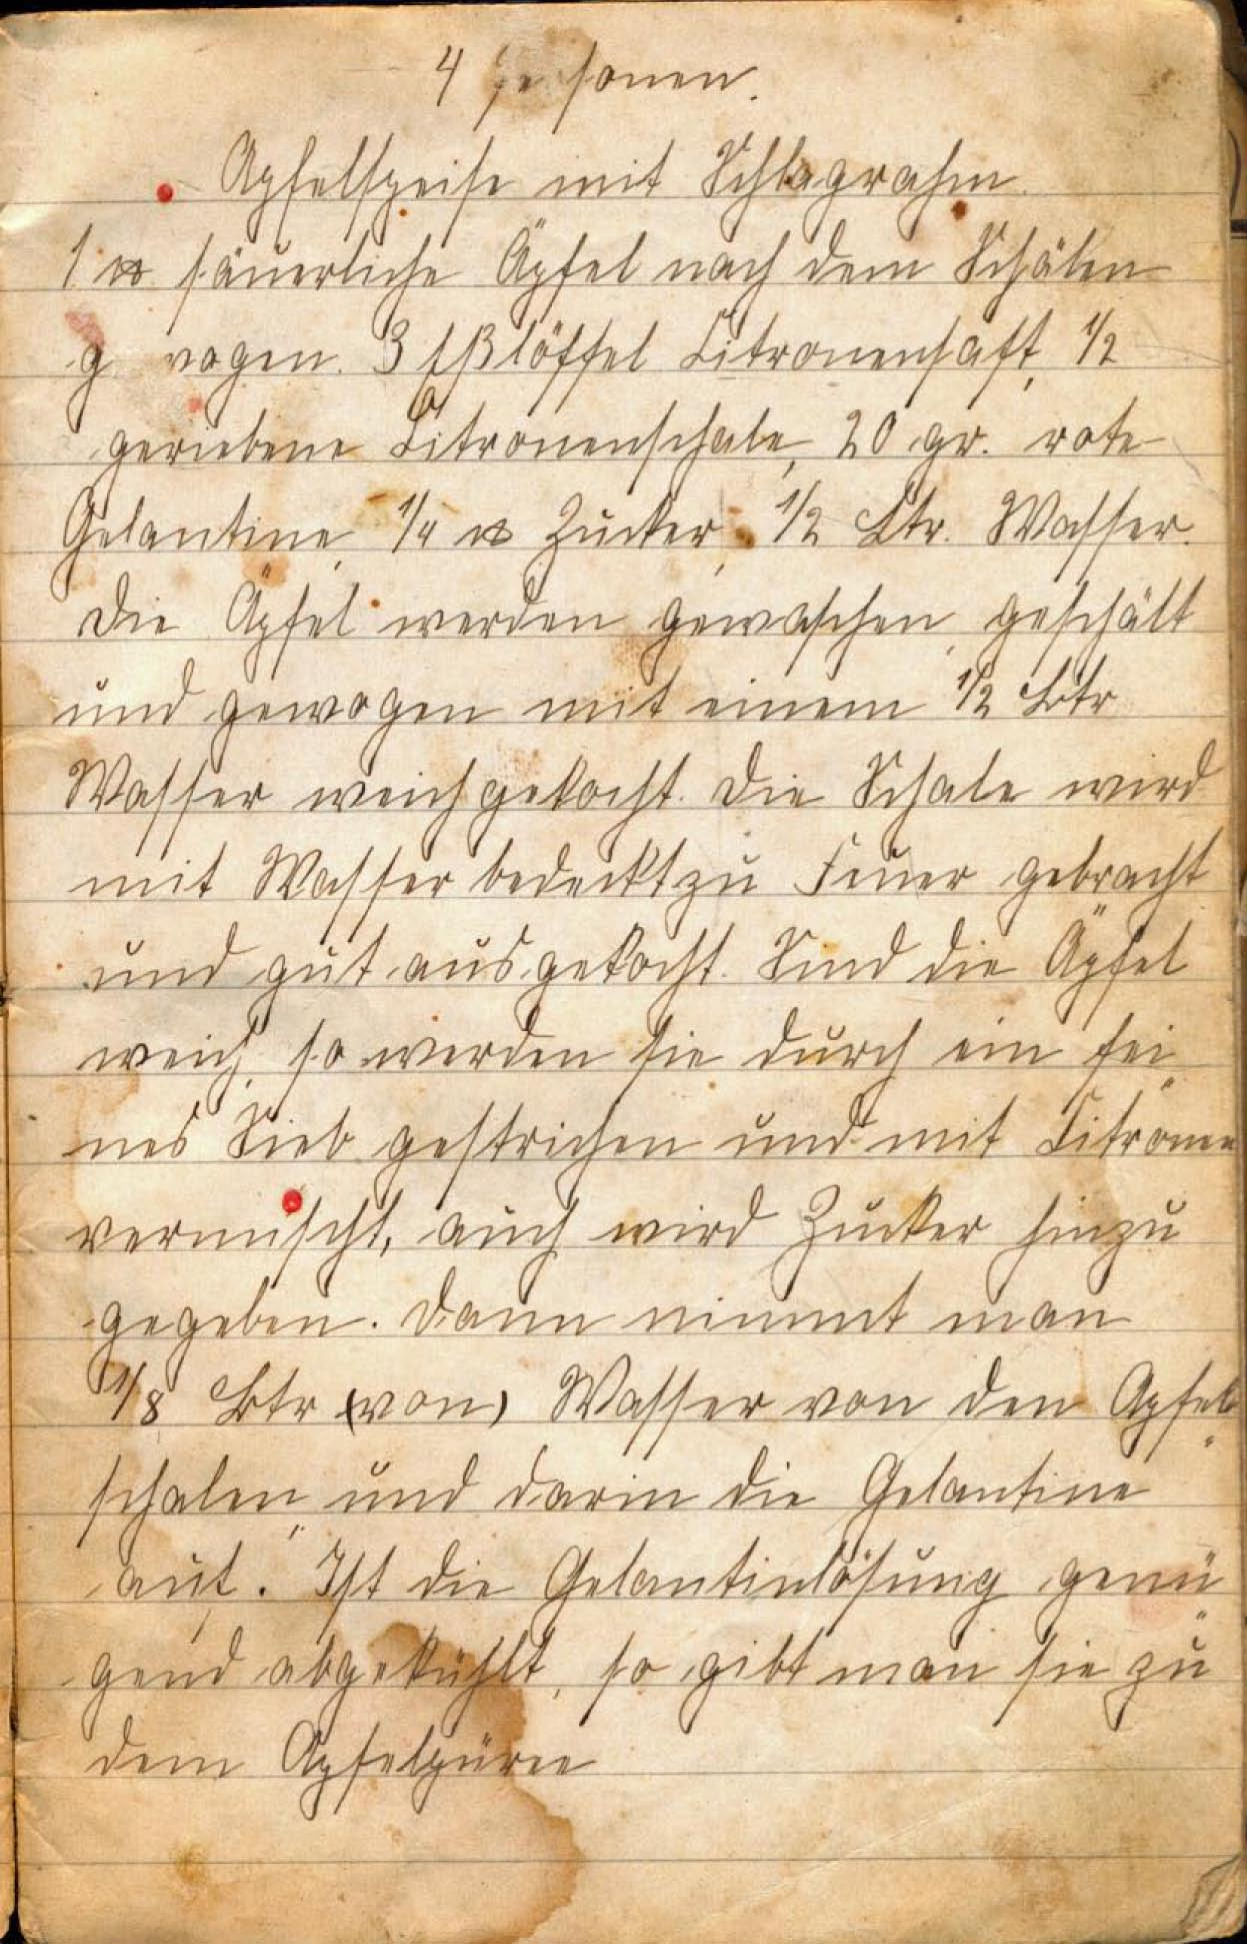 4 Personen.
Apfelspeise mit Schlagrahm.
1 ℔ säuerliche Äpfel nach dem Schälen
gewogen. 3 Eßlöffel Citronensaft, 1/2
geriebene Citronenschale, 20 gr. rote
Gelantine, 1/4 ℔ Zucker, 1/2 Ltr. Wasser.
Die Äpfel werden gewaschen, geschält
und gewogen mit einem 1/2 Ltr
Wasser weich gekocht. Die Schale wird
mit Wasser bedeckt zu Feuer gebracht
und gut ausgekocht. Sind die Äpfel
weich, so werden sie durch ein fei„
nes Sieb gestrichen und mit Citronen
vermischt, auch wird Zucker hinzu
gegeben. Dann nimmt man
1/8 Ltr (von) Wasser von den Apfel„
schalen„ und darin die Gelantine
auf. Ist die Gelantinlösung genü„
gend abgekühlt, so gibt man sie zu
dem Apfelpüree